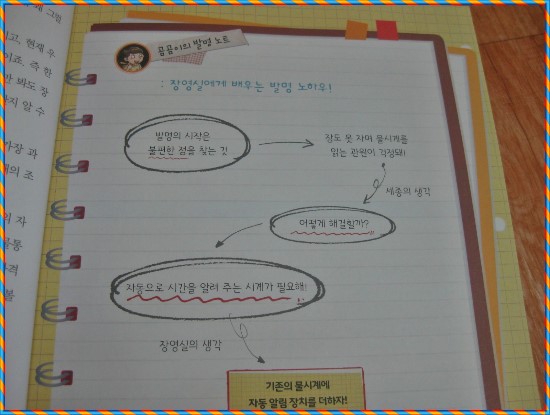 곰곰이의 발명 노트
: 장영실에게 배우는 발명 노하우!
발명의 시작은
불편한 점을 찾는 것
잠도 못 자며 물시계를
읽는 관원이 걱정돼!
세종의 생각
어떻게 해결할까?
자동으로 시간을 알려 주는 시계가 필요해!
장영실의 생각
기존의 물시계에
자동 알림 장치를 더하자!
고, 현재 우
이죠. 즉 한
만 봐도 장
지 알 수
가장 과
의 조
자
물통